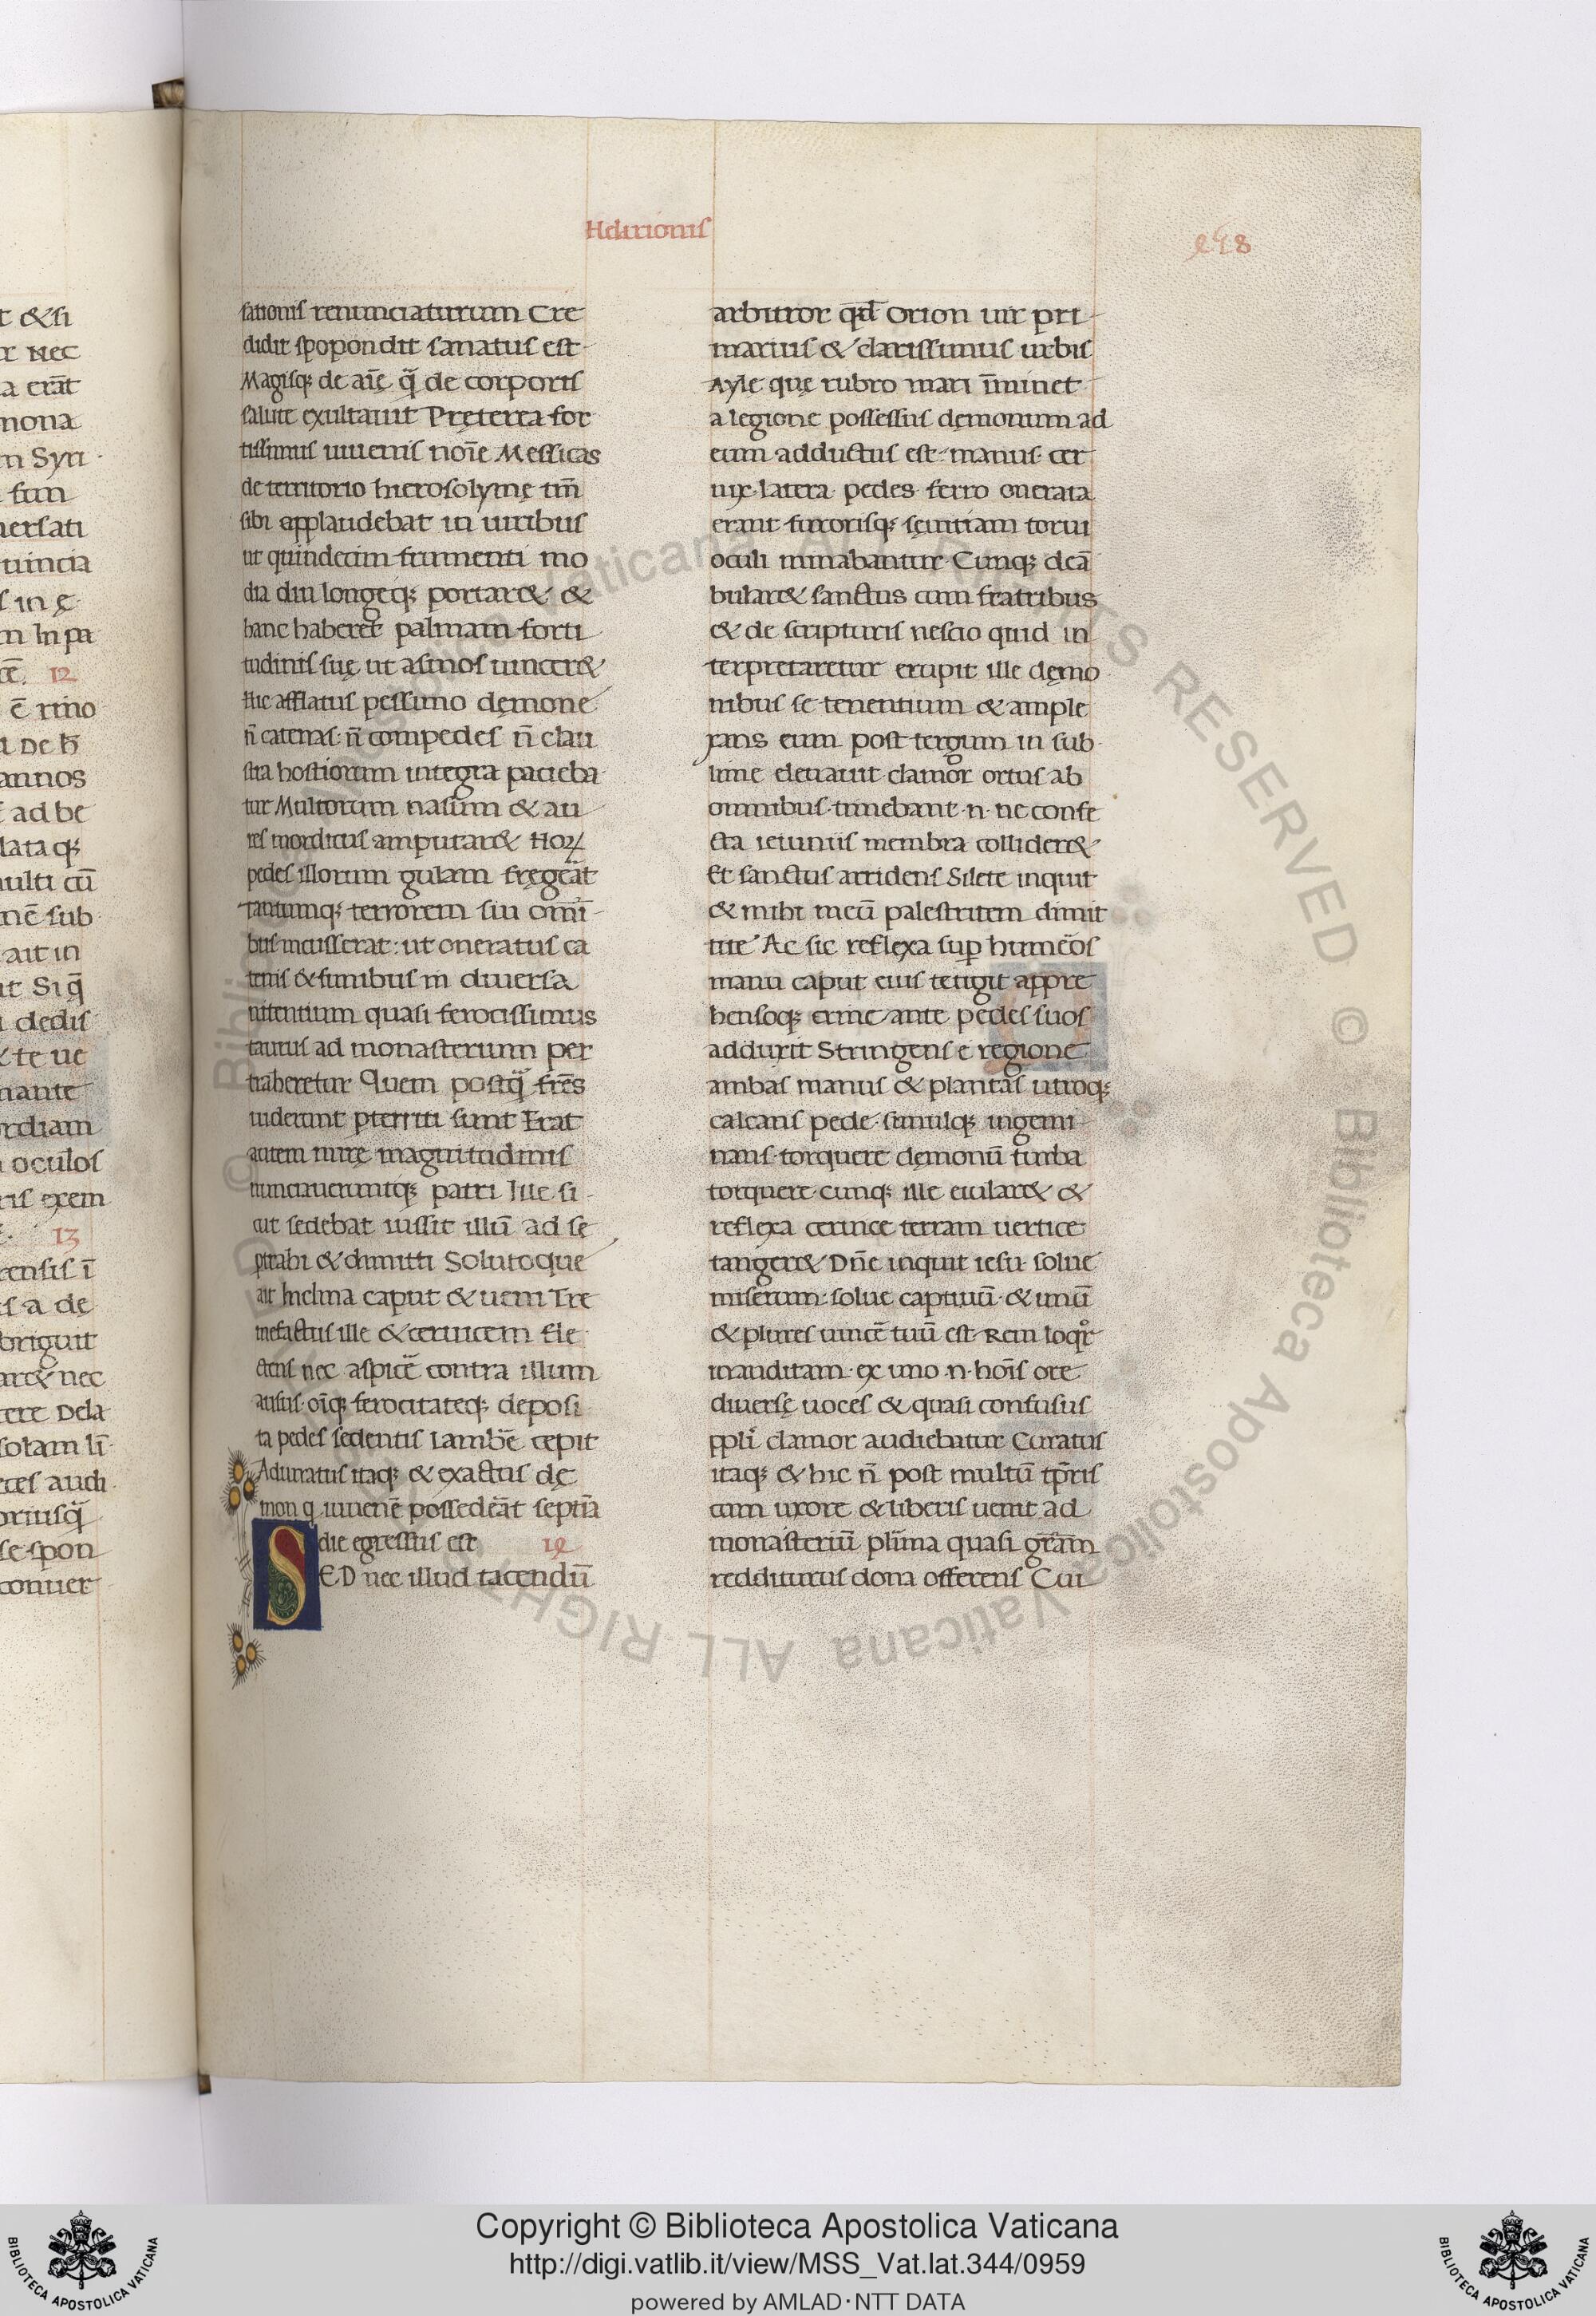 Helarionis
458
t &si
r Nec
a erāt
mona
m Syri
fun
uersati
uincia
s in ę
m In pa
cē. 12
ē rino
a De h̄
annos
s ad be
lata q;
multi cū
mē sub
ait in
it Si q̄
dedis
& te ue
mante
ordiam
oculos
ris exem
13
rensis ī
is a de
briguit
ar& nec
cere Dela
solam li
ces audi
oriusq̄
se spon
conuer
sationis renunciaturum Cre
didit spopondit sanatus est
Magisq; de aīę q̄ de corporis
salute exultauit Pręterea for
tissimus iuuenis noīe Messicas
de territorio hierosolymę tm̄
sibi applaudebat in uiribus
ut quindecim frumenti mo
dia diu longeq; portar& &
hanc haberet palmam forti
tudinis suę ut asinos uincer&
Hic afflatus pessimo dęmone
n̄ catenas n̄ compedes n̄ clau
stra hostiorum integra pacieba
tur Multorum nasum & au
res mordicus amputar& Hoꝝ
pedes illorum gulam fręgerāt
tantumq; terrorem sui omi
bus incusserat: ut oneratus ca
tenis & funibus in diuersa
nitentium quasi ferocissimus
taurus ad monasterium per
traheretur Quem postq̄ frēs
uiderunt pterriti sunt Erat
autem mirę magnitudinis
nunciaueruntq; patri Ille si
cut sedebat iussit illū ad se
ptrahi & dimitti Solutoque
ait Inclina caput & ueni Tre
mefactus ille & ceruicem fle
ctens nec aspicē contra illum
ausus oīq; ferocitateq; deposi
ta pedes sedentis lambē cepit
Adiuratus itaq; & exactus dę
mon q iuuenē possederāt septīa
die egressus est 14
SED nec illud tacendū
arbitror qđ Orion uir pri
marius & clarissimus urbis
Ayle quę rubro mari īminet
a legione possessus dęmonum ad
eum adductus est manus cer
uix latera pedes ferro onerata
erant furorisq; sęuitiam torui
oculi minabantur Cunq; deā
bular& sanctus cum fratribus
& de scripturis nescio quid in
terpretaretur erupit ille dęmo
nibus se tenentium & ample
xans eum post tergum in sub
lime eleuauit clamor ortus ab
omnibus timebant n ne confe
cta ieiuniis membra collider&
Et sanctus arridens Silete inquit
& mihi meū palestritem dimit
tite Ac sic reflexa sup humeros
manu caput eius tetigit appre
hensoq; crine ante pedes suos
adduxit Stringens e regione
ambas manus & plantas utroq;
calcans pede simulq; ingemi
nans torquere dęmonū turba
torquere cunq; ille eiular& &
reflexa ceruice terram uertice
tanger& Dn̄e inquit iesu solue
miserum: solue captiuū & unū
& plures uincē tuū est Rem loqr
inauditam ex uno n hoīs ore
diuersę uoces & quasi confusus
ppli clamor audiebatur Curatus
itaq; & hic n̄ post multū tp̄ris
cum uxore & liberis uenit ad
monasteriū plīma quasi gr̄am
redditurus dona offerens Cui
© Biblioteca Apostolica Vaticana ALL RIGHTS RESERVED © Biblioteca Apostolica Vaticana ALL RIGHTS RESERVED
Copyright © Biblioteca Apostolica Vaticana
http://digi.vatlib.it/view/MSS_Vat.lat.344/0959
powered by AMLAD·NTT DATA
BIBLIOTECA APOSTOLICA VATICANA
BIBLIOTECA APOSTOLICA VATICANA